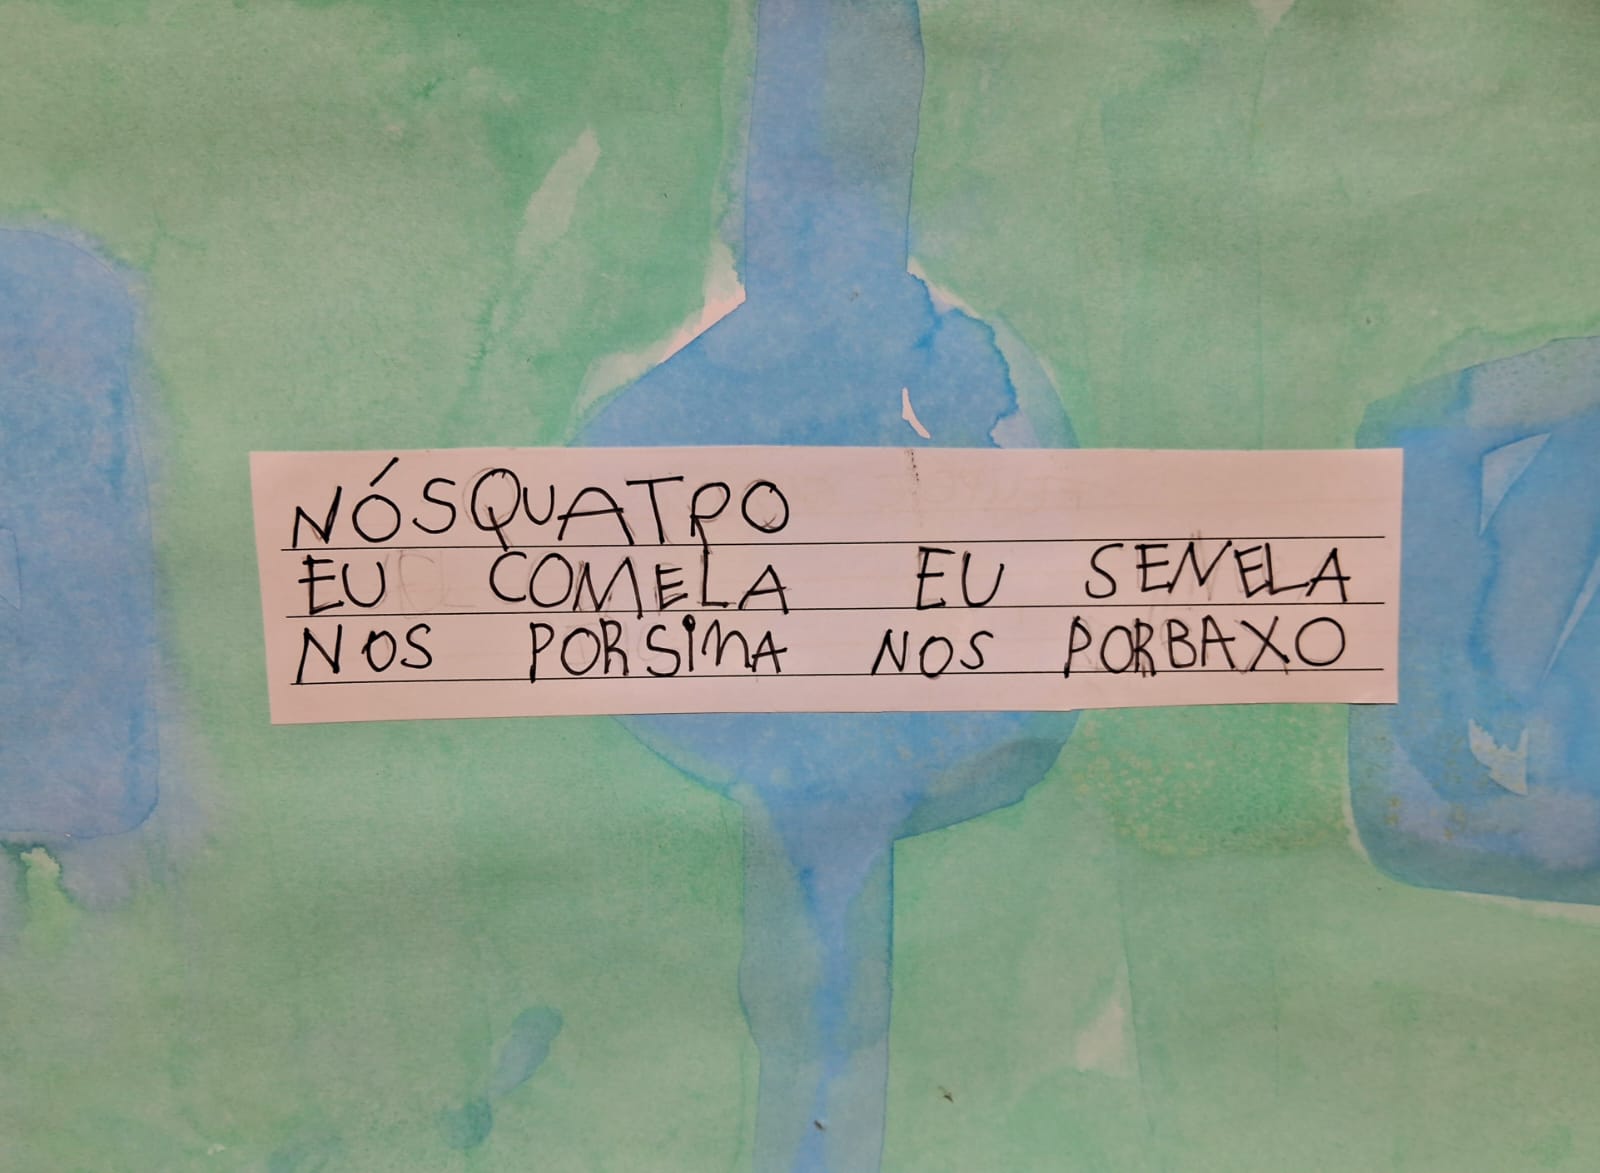 NÓSQUATRO
EU COMELA EU SENELA
NOS PORSIMA NOS PORBAXO